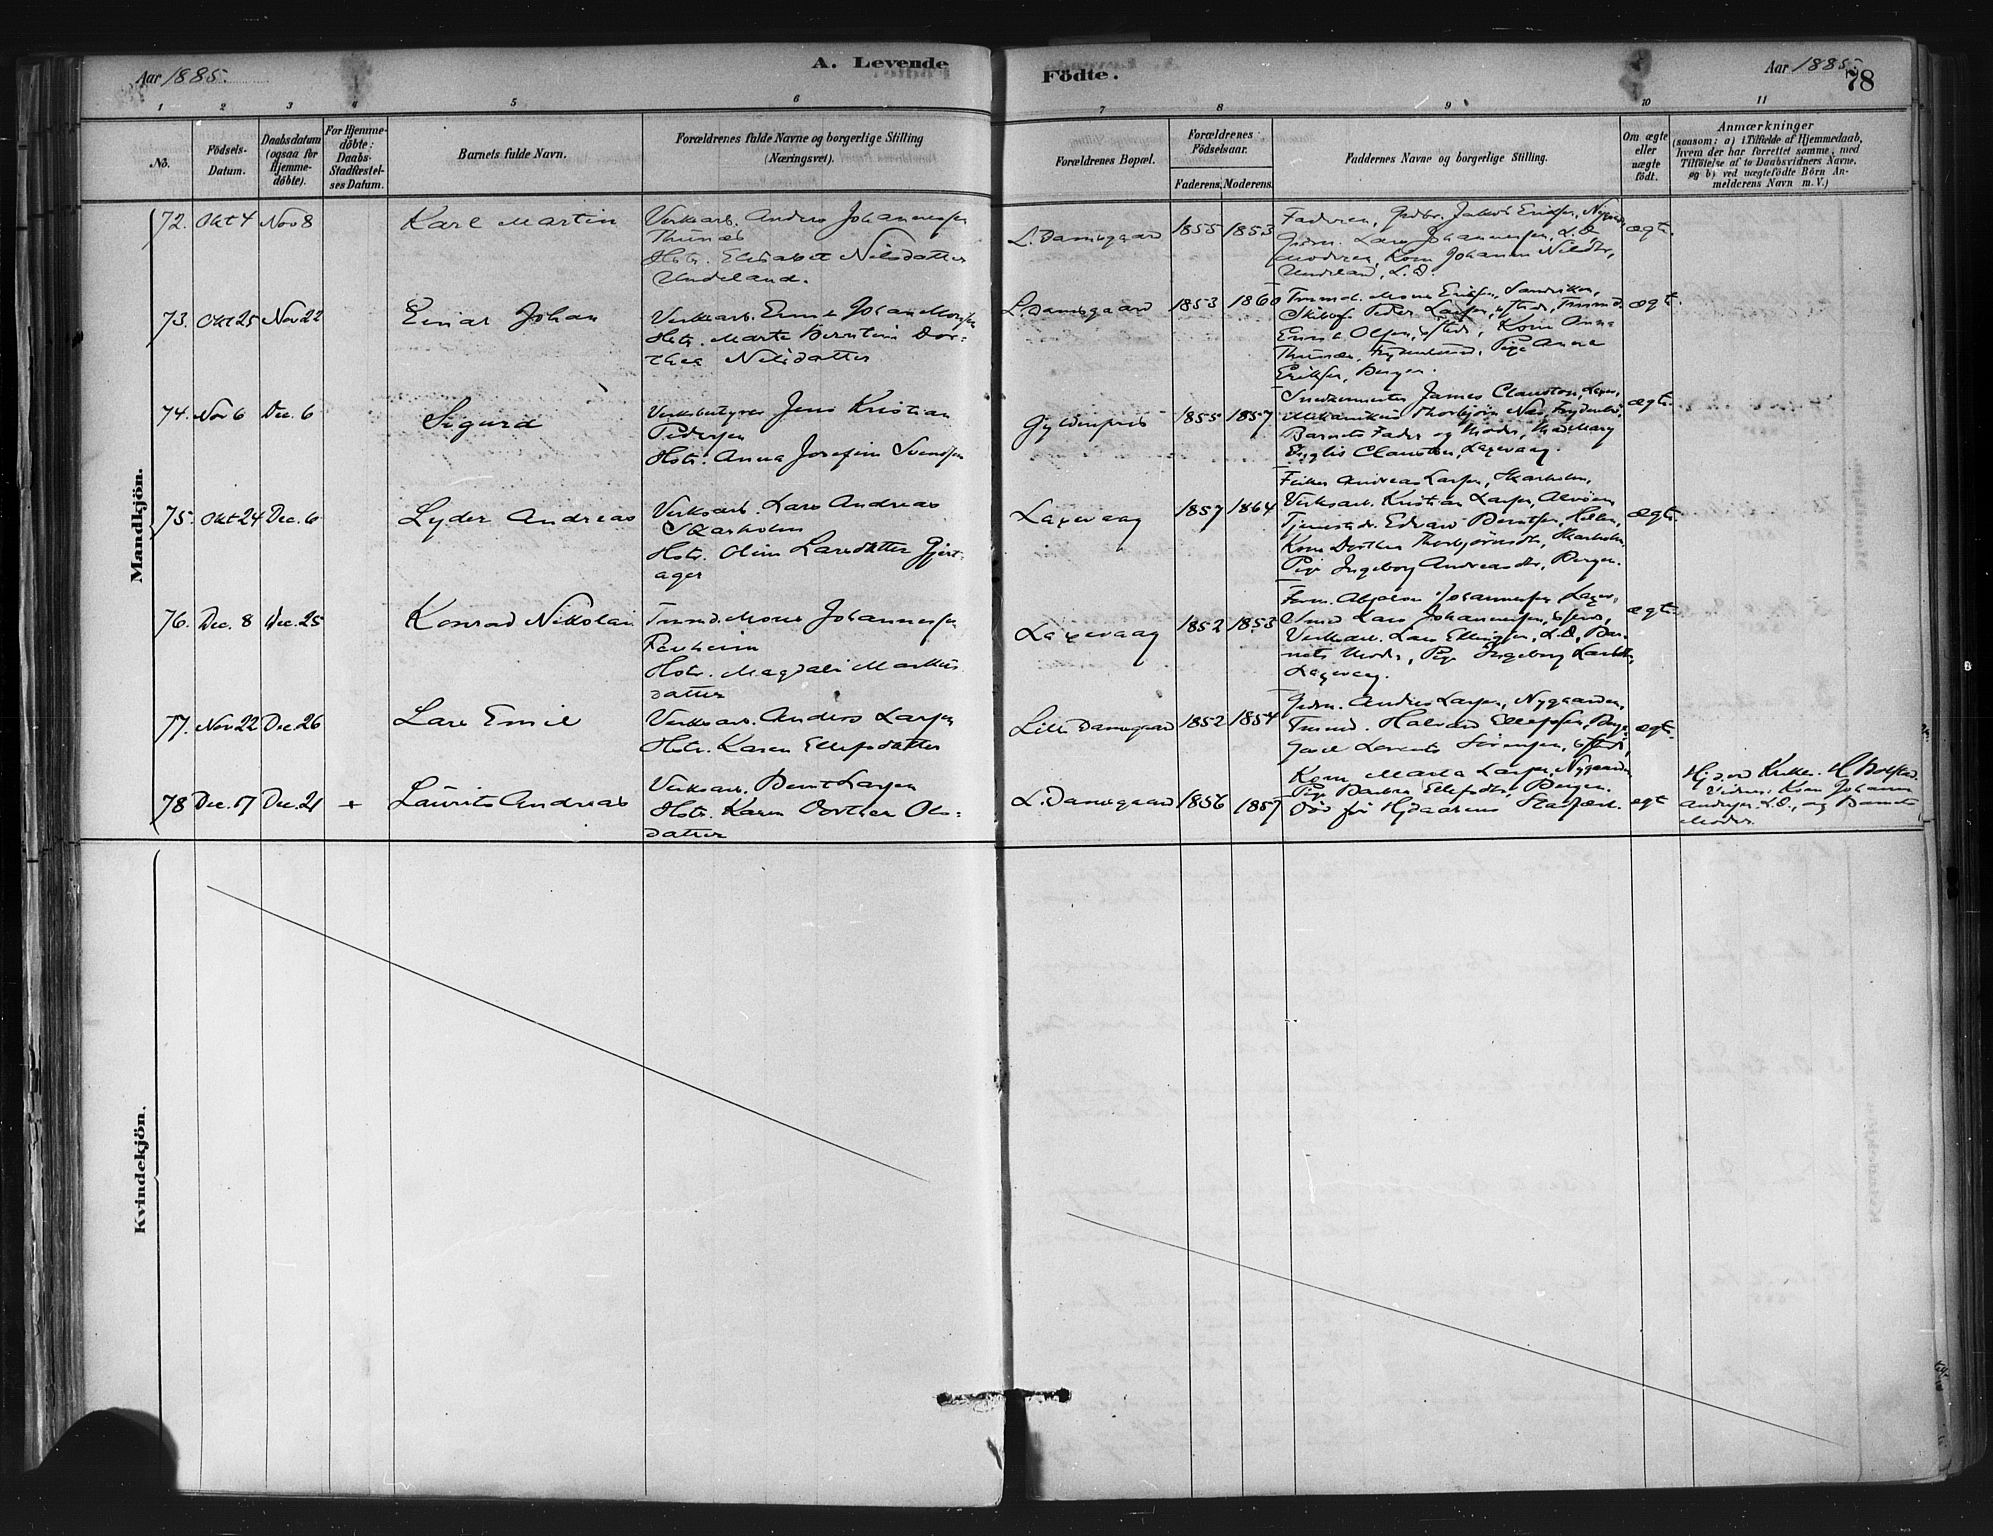 Aar 1885.
A. Levende
Födte.
Aar 1885.
78
1 2 3 4 5 6 7 8 9 10 11
No.
Födsels-
Datum.
Daabsdatum
(ogsaa for
Hjemme-
döbte).
For Hjemme-
döbte:
Daabs-
Stadfestel-
ses Datum.
Barnets fulde Navn.
Forældrenes fulde Navne og borgerlige Stilling
(Næringsvei).
Forældrenes Bopæl.
Forældrenes
Födselsaar.
Faderens. Moderens.
Faddernes Navne og borgerlige Stilling.
Om ægte
eller
uægte
födt.
Anmærkninger
(saasom: a) i Tilfælde af Hjemmedaab,
hvem der har forrettet samme, med
Tilföielse af to Daabsvidners Navne,
og b) ved uægtefödte Börn An-
melderens Navn m. V.)
Mandkjön.
72. Okt 4 Nov 8
Karl Martin
Verksarb. Anders Johannessen
Thunæs
Hstr. Elisabet Nilsdatter
Undeland.
L. Damsgaard
1855 1853
Faderen, Jakob Eriksen,
Lars Johannessen, L.D.
Moderen, Kone Johanna Nilsdtr,
Undeland, L.D.
ægte.
73. Okt 25 Nov 22
Einar Johan
Verksarb. Johan Monsen
Hstr. Marte Berntine Dor-
thea Nilsdatter
L. Damsgaard
1853 1860
Tmmd. Mons Eriksen, Sandviken,
Peder Larsen, ofsteds, Tmmd.
Ernst Olsen, ofsteds, Kone Anna
Thunæs, Pige Anna
Eriksen, Bergen.
ægte.
74. Nov 6 Dec. 6
Sigurd
Verksbestyrer Jens Kristian
Pedersen
Hstr. Anna Josefine Svensen
Gyldenpris
1855 1857
James Clauston, Laxev,
Mekanikus Thorbjørn
Barnets Fader og Moder, Mad. Mary
Clauston, Laxevaag.
ægte.
75. Okt 24 Dec. 6
Lyder Andreas
Verksarb. Lars Andreas
Skarholm
Hstr. Oline Larsdatter Gjert-
ager
Laxevaag
1857 1864
Fisker Andreas Larsen, Skarholm,
Verksarb. Kristian Larsen, Alvøen
Tjenestedr. Edvard Berntsen,
Kone Dorthea Thorbjørnsdtr, Skarholm,
Pige Ingeborg Andreasdtr, Bergen.
ægte.
76. Dec. 8 Dec. 25
Konrad Nikolai
Tmmd. Mons Johannessen
Hstr. Magdali Markus-
datter
Laxevaag
1852 1853
Form. Absalon Johannessen Laxev,
Smed Lars Johannessen, ofsteds,
Verksarb. Lars Ellingsen, L.D, Bar-
nets Moder, Pige Ingeborg
Laxevaag.
ægte.
77. Nov. 22 Dec. 26
Lars Emil
Verksarb. Anders Larsen
Hstr. Karen Ellefsdatter
Lille Damsgaard
1852 1854
Anders Larsen, Nygaarden,
Tmmd. Halvard Ellefsen,
Lorents Sørensen, ofsteds,
Kone Marta Larsen, Nygaarden
Pige Barbra Ellefsdtr, Bergen.
ægte.
78 Dec. 17 Dec. 21 +
Laurits Andreas
Verksarb. Bernt Larsen
Hstr. Karen Dorthea Ols-
datter
L. Damsgaard
1856 1857
Død før Hjdaabens Stadfæst.
egt
Hjd. ved H. Bolstad.
Vidner: Kone Johanna
Andersen L.D., og Barnets
Moder.
Kvindekjön.